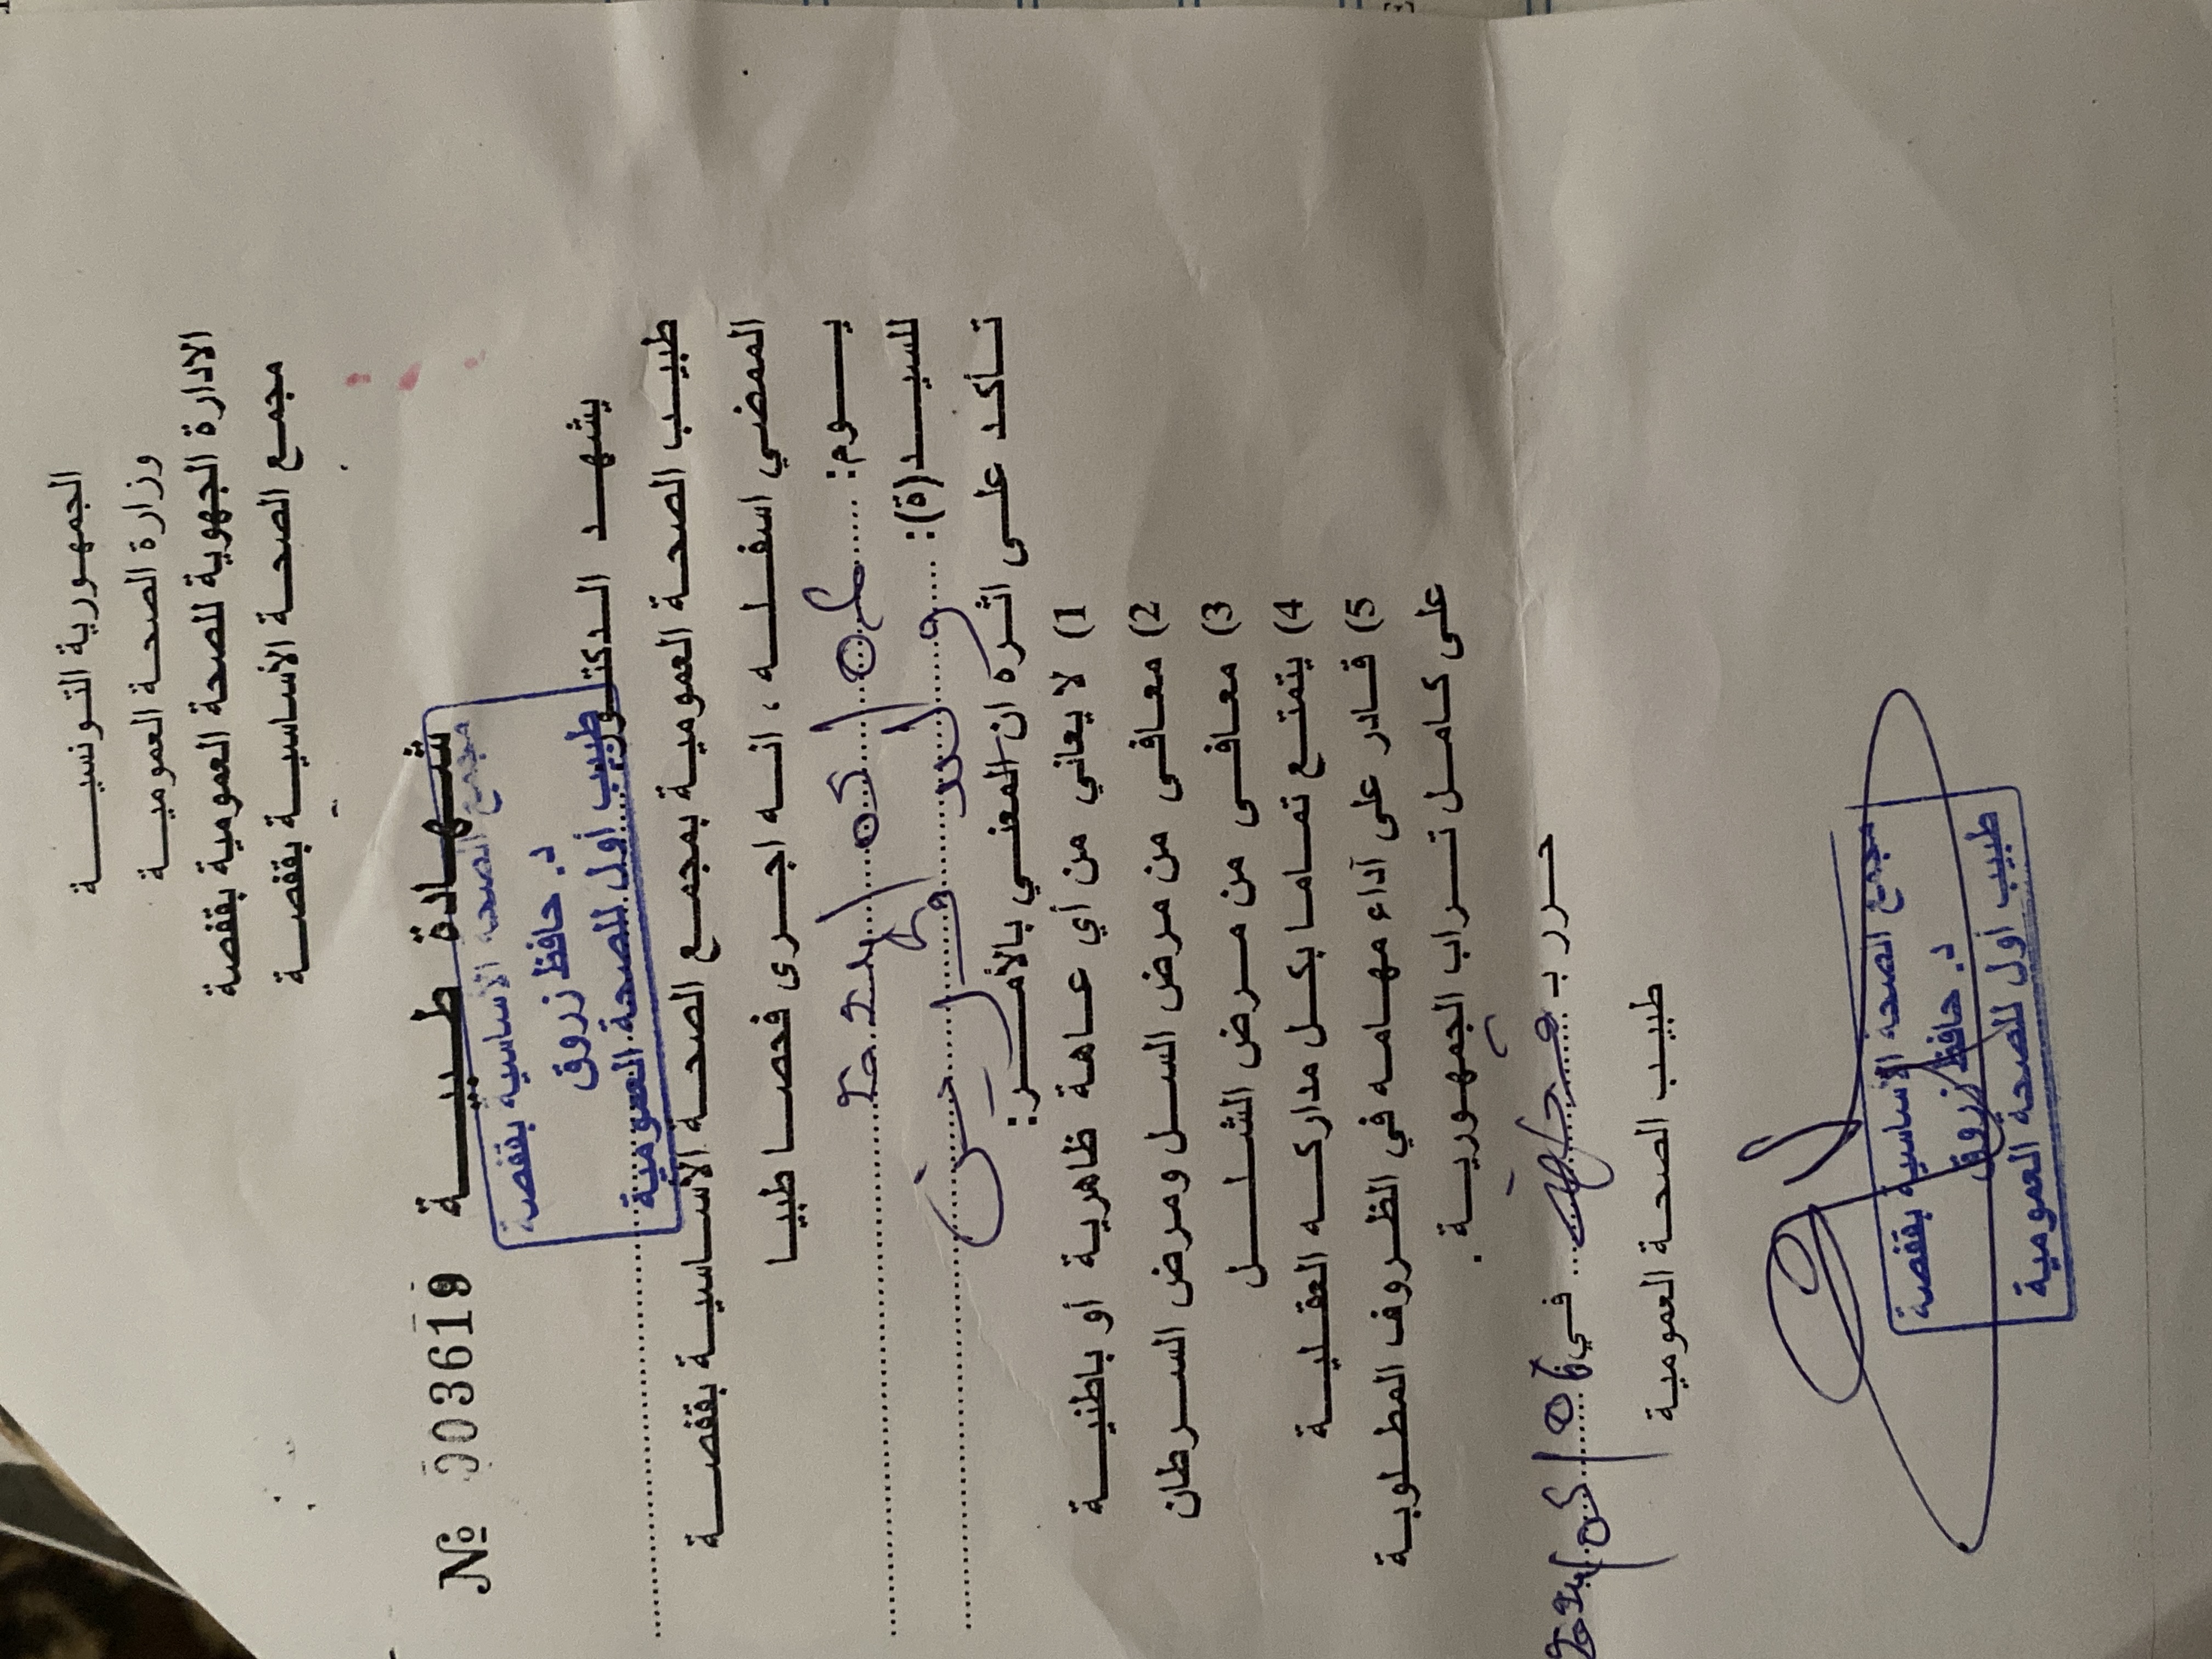 الجمهورية التونسية
وزارة الصحة العمومية
الادارة الجهوية للصحة العمومية بقفصة
مجمع الصحة الأساسية بقفصة
شهادة طبية
№ 003619
يشهد الدكتور:
مجمع الصحة الأساسية بقفصة
د. حافظ زروق
طبيب أول للصحة العمومية
طبيب الصحة العمومية بمجمع الصحة الأساسية بقفصة
الممضي اسفله ، انه اجرى فحصا طبيا
يوم:
للسيد(ة):
تأكد على اثره ان المعني بالأمر:
1) لا يعاني من أي عاهة ظاهرية أو باطنية
2) معافى من مرض السل ومرض السرطان
3) معافى من مرض الشلل
4) يتمتع تماما بكل مداركه العقلية
5) قادر على آداء مهامه في الظروف المطلوبة
على كامل تراب الجمهورية .
حرر ب في
طبيب الصحة العمومية
مجمع الصحة الأساسية بقفصة
د. حافظ زروق
طبيب أول للصحة العمومية